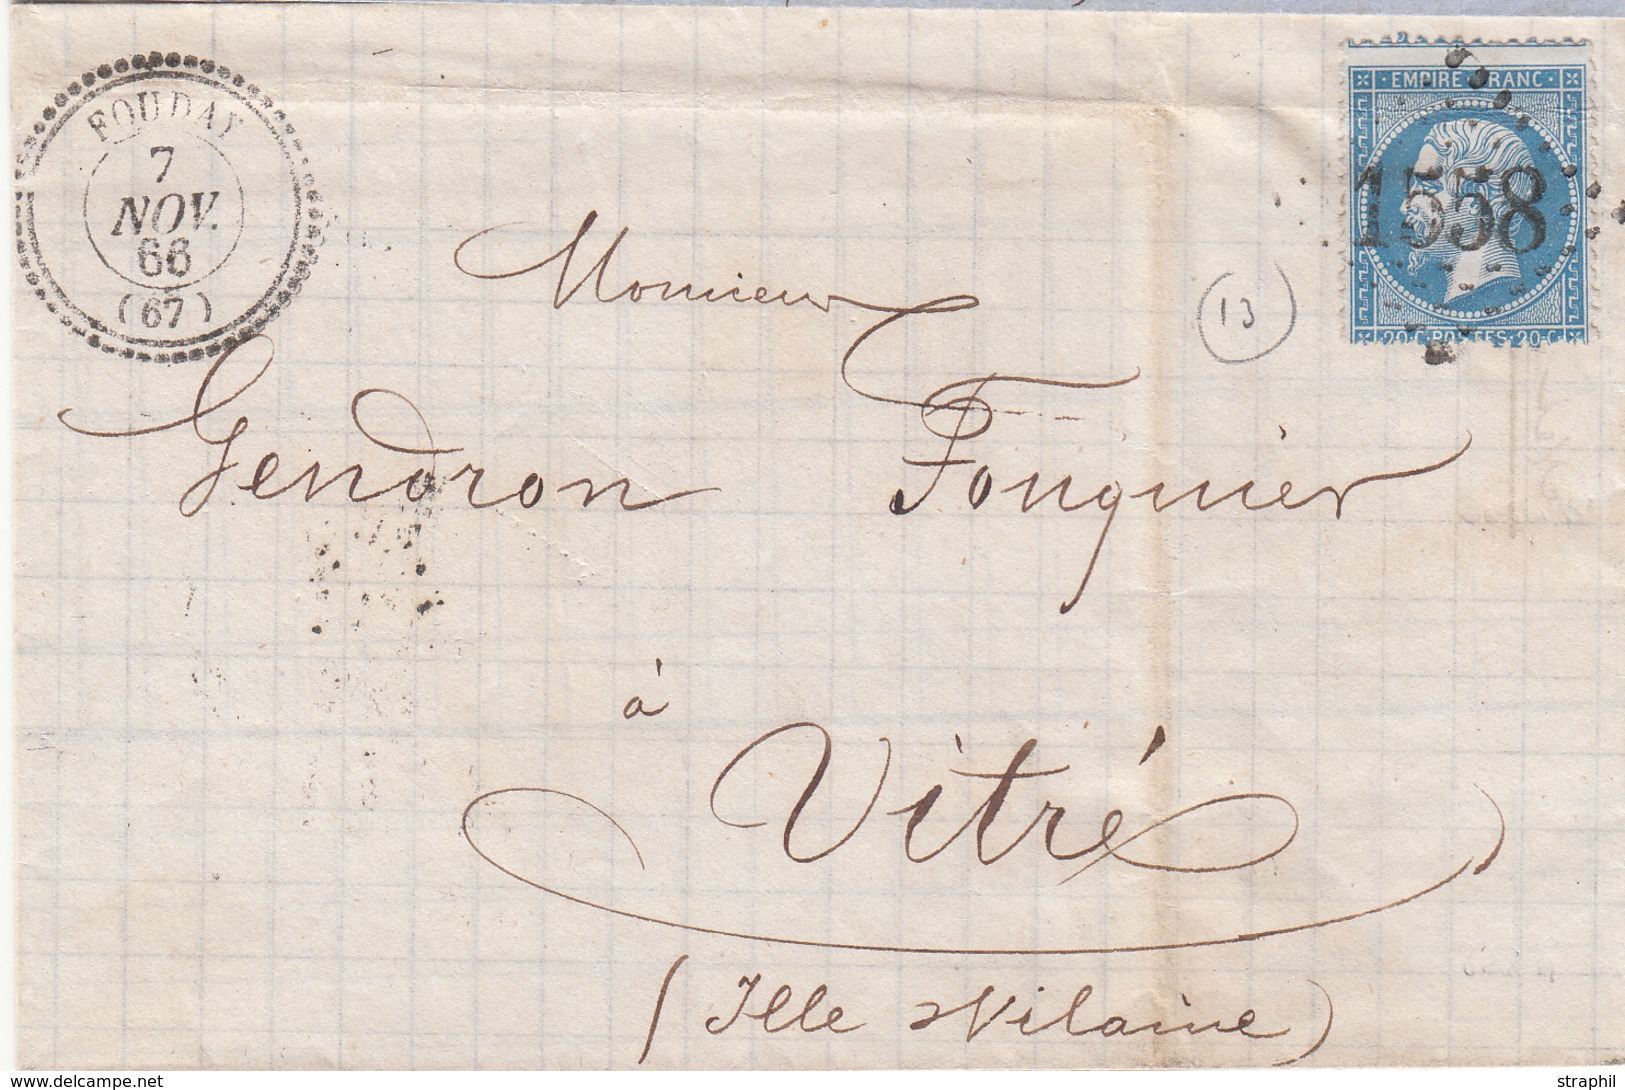 FOUDAY
7
NOV.
66
(67)
EMPIRE FRANC
1558
20 C POSTES 20 C
13
Monsieur
Gendron Fouquier
à
Vitré
(Ille & Vilaine)
www.delcampe.net
straphil